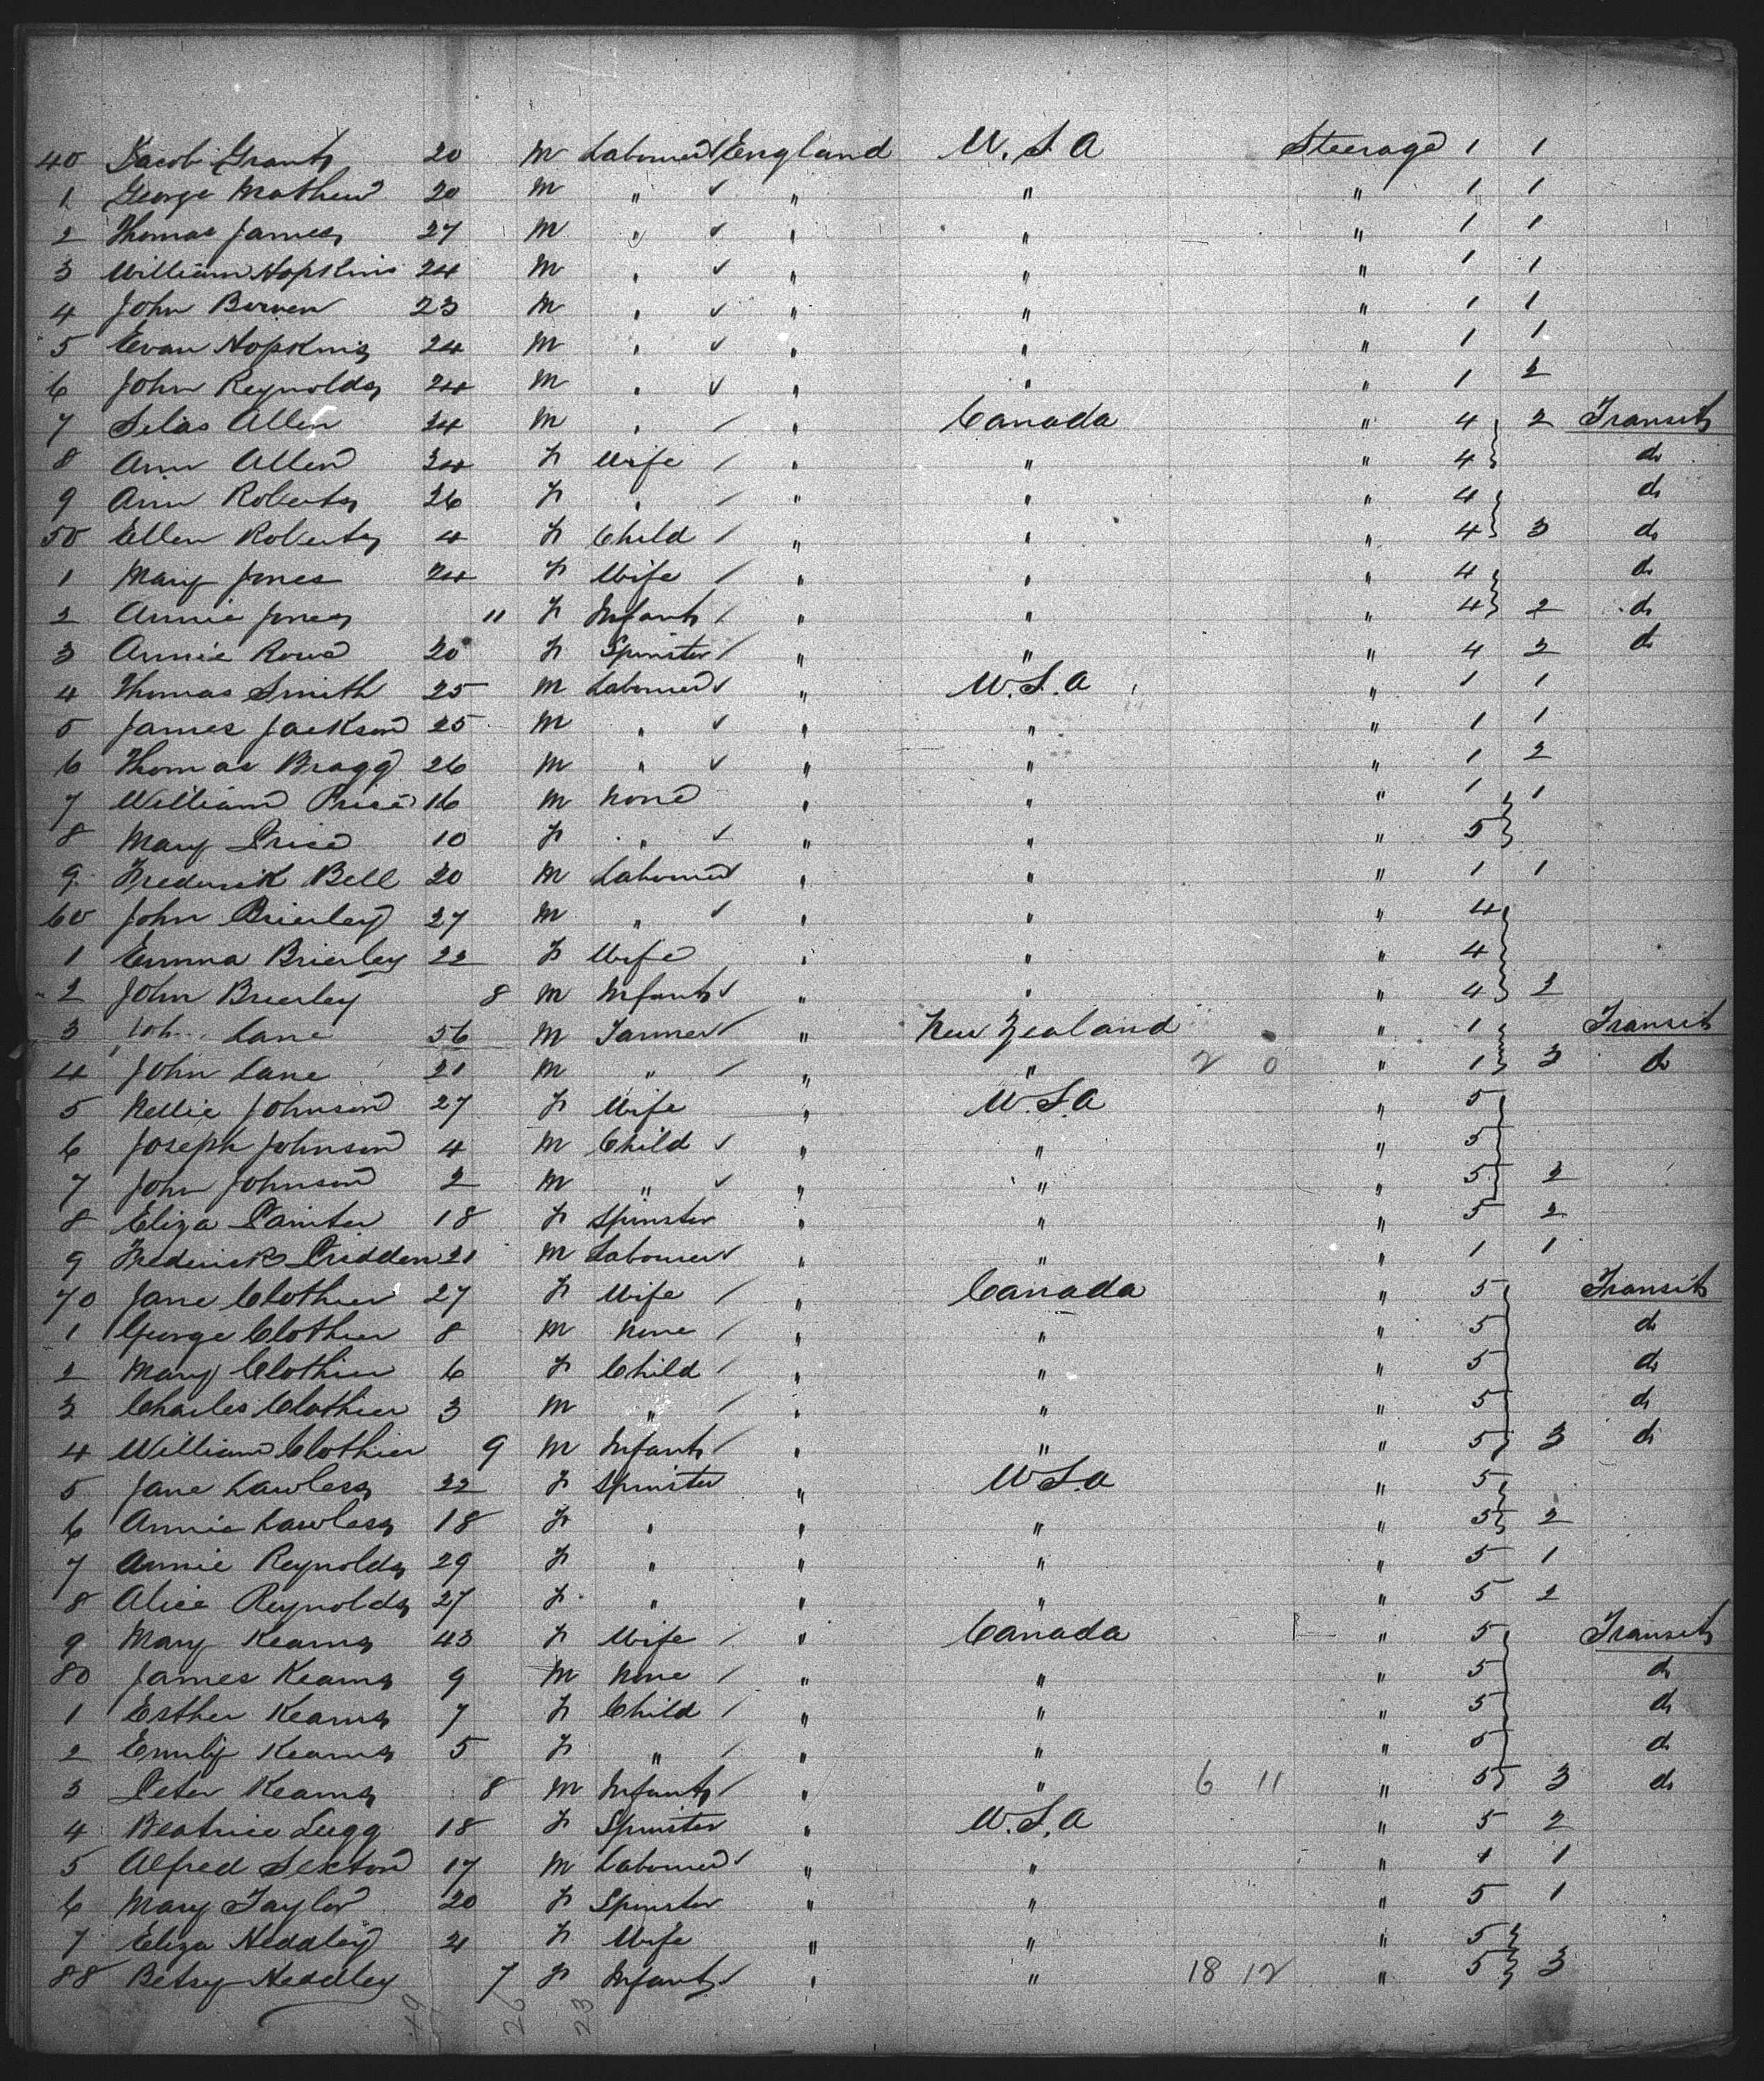 40 Jacob Grant 20 M Labourer England U.S.A Steerage 1 1
1 George Mathew 20 M " " " " 1 1
2 Thomas James 27 M " " " " 1 1
3 William Hopkins 24 M " " " " 1 1
4 John Bowen 23 M " " " " 1 1
5 Evan Hopkins 24 M " " " " 1 1
6 John Reynolds 24 M " " " " 1 2
7 Silas Allen 24 M " " Canada " 4 2 Transit
8 Ann Allen 24 F Wife " " " 4 do
9 Ann Roberts 26 F " " " " 4 do
50 Ellen Roberts 4 F Child " " " 4 3 do
1 Mary Jones 24 F Wife " " " 4 do
2 Annie Jones 11 F Infant " " " 4 2 do
3 Annie Rowe 20 F Spinster " " " 4 2 do
4 Thomas Smith 25 M Labourer " U.S.A " 1 1
5 James Jackson 25 M " " " " 1 1
6 Thomas Bragg 26 M " " " " 1 2
7 William Price 16 M None " " " 1 1
8 Mary Price 10 F " " " " 5
9 Frederick Bell 20 M Labourer " " " 1 1
60 John Brierley 27 M " " " " 4
1 Emma Brierley 22 F Wife " " " 4
2 John Brierley 8 M Infant " " " 4 2
3 Lane 56 M Farmer " New Zealand " 1 Transit
4 John Lane 21 M " " " 2 0 " 1 3 do
5 Nellie Johnson 27 F Wife " U.S.A " 5
6 Joseph Johnson 4 M Child " " " 5
7 John Johnson 2 M " " " " 5 2
8 Eliza Painter 18 F Spinster " " " 5 2
9 Frederick Pridden 21 M Labourer " " " 1 1
70 Jane Clothier 27 F Wife " Canada " 5 Transit
1 George Clothier 8 M None " " " 5 do
2 Mary Clothier 6 F Child " " " 5 do
3 Charles Clothier 3 M " " " " 5 do
4 William Clothier 9 M Infant " " " 5 3 do
5 Jane Lawless 22 F Spinster " U.S.A " 5
6 Annie Lawless 18 F " " " " 5 2
7 Annie Reynolds 29 F " " " " 5 1
8 Alice Reynolds 27 F " " " " 5 2
9 Mary Kearns 43 F Wife " Canada " 5 Transit
80 James Kearns 9 M None " " " 5 do
1 Esther Kearns 7 F Child " " " 5 do
2 Emily Kearns 5 F " " " " 5 do
3 Peter Kearns 8 M Infant " " 6 11 " 5 3 do
4 Beatrice Lugg 18 F Spinster " U.S.A " 5 2
5 Alfred Sexton 17 M Labourer " " " 1 1
6 Mary Taylor 20 F Spinster " " " 5 1
7 Eliza Heddley 21 F Wife " " " 5
88 Betsy Heddley 7 F Infant " " 18 12 " 5 3
26 23